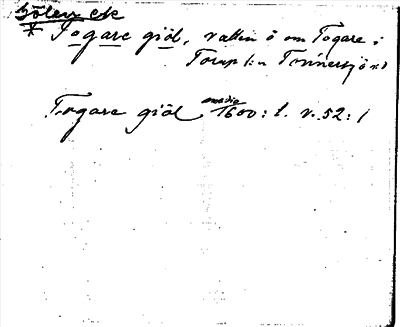 Göler ck
* Togare giöl, vatten ö om Togare i
Torup sn Tönnersjö hd
Togare giöl media 1600: t. v. 52: 1